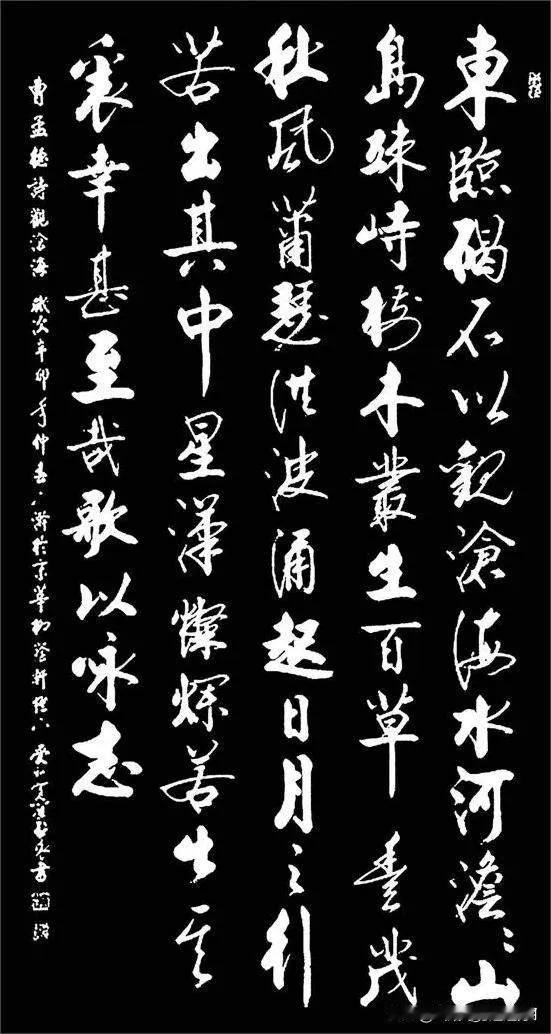 東臨碣石以觀滄海水河澹〻山
島竦峙樹木叢生百草豐茂
秋風蕭瑟洪波涌起日月之行
若出其中星漢燦爛若出其
裏幸甚至哉歌以咏志
曹孟德詩觀滄海 歲次辛卯年仲春 於京華 書